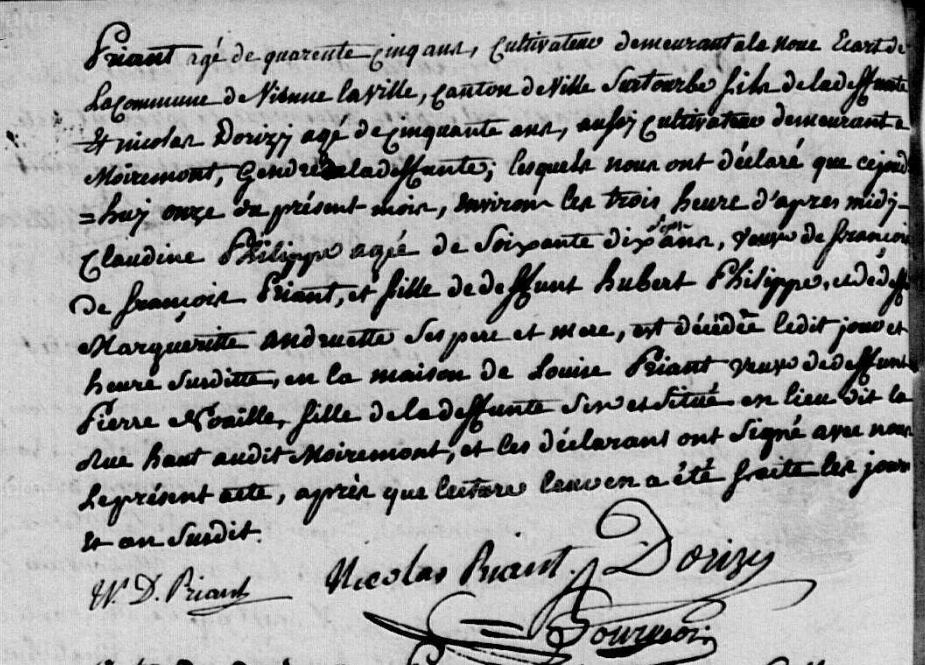 Archives de la Marne
Priant agé de quarente cinq ans, Cultivateur demeurant a la noue Ecart de
La Commune de Vienne la ville, Canton de Ville Surtourbe fils de la deffunte
Et nicolas Dorizy agé de Cinquante ans, aussy Cultivateur demeurant a
Moiremont, Gendre de la deffunte; lesquels nous ont déclaré que cejourd
=huy onze du présent mois, Environ les trois heure d'apres midy
Claudine Philippe agée de Soixante dix sept ans, veuve de françois
de françois Priant, et fille de deffunt hubert Philippe, et de deff
Margueritte andruette Ses pere et mere, est décédée ledit jour et
heure Susditte, en la maison de Louise Priant veuve de deffunt
Pierre Nouille, fille de la deffunte Sise et Situé en lieu dit la
Rue haut audit Moiremont, et les déclarans ont Signé avec nous
Le présent acte, après que lecture leur en a été faitte les jour
Et an Susdit.
N. D. Priant Nicolas Priant. Dorizy